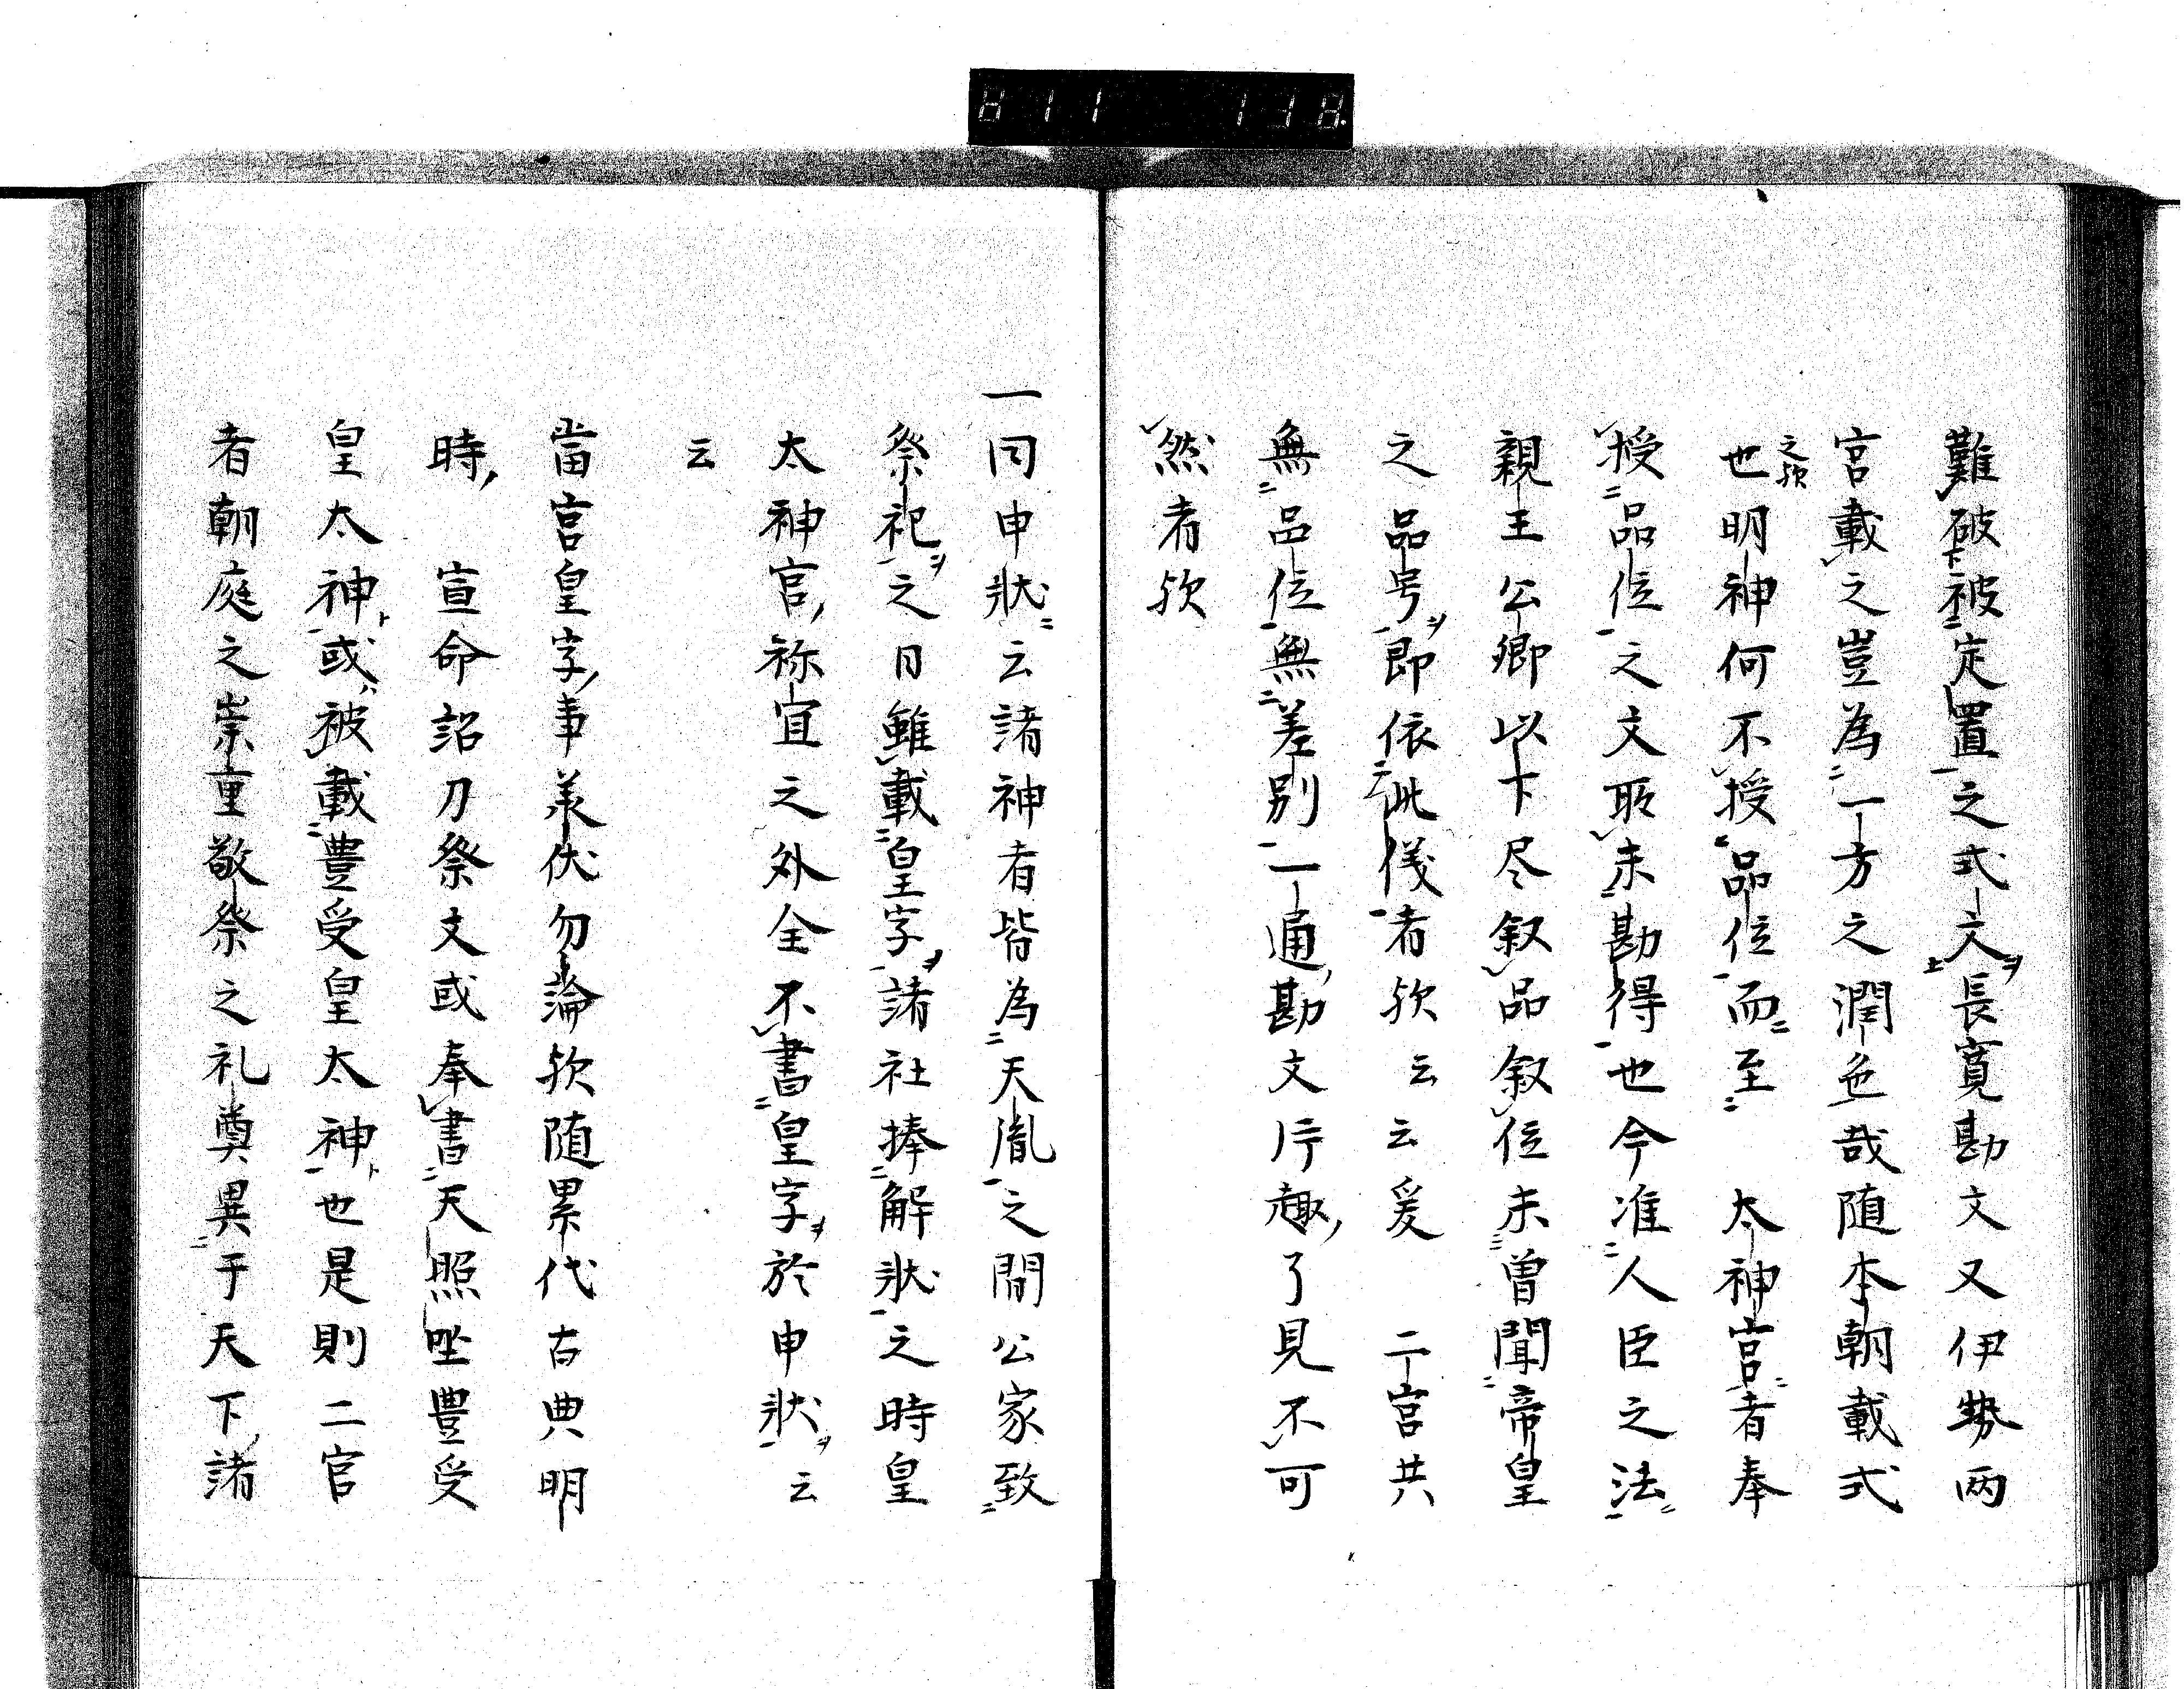 難破被定置之式文長寛勘文又伊勢両
宮載之豈為一方之潤色哉随本朝載式
也明神何不授品位而至　太神宮者奉
之欤
授品位之文取未勘得也今准人臣之法
親王公卿以下尽叙品叙位未曽聞帝皇
之品号即依此儀者欤云云爰　二宮共
無品位無差別一通勘文片趣了見不可
然者欤
一同申状云諸神者皆為天胤之間公家致
祭祀之日雖載皇字諸社捧解状之時皇
太神宮祢宜之外全不書皇字於申状云
云
当宮皇字事義伏勿論欤随累代古典明
時　宣命詔刀祭文或奉書天照坐豊受
皇太神或被載豊受皇太神也是則二宮
者朝庭之崇重敬祭之礼奠異于天下諸